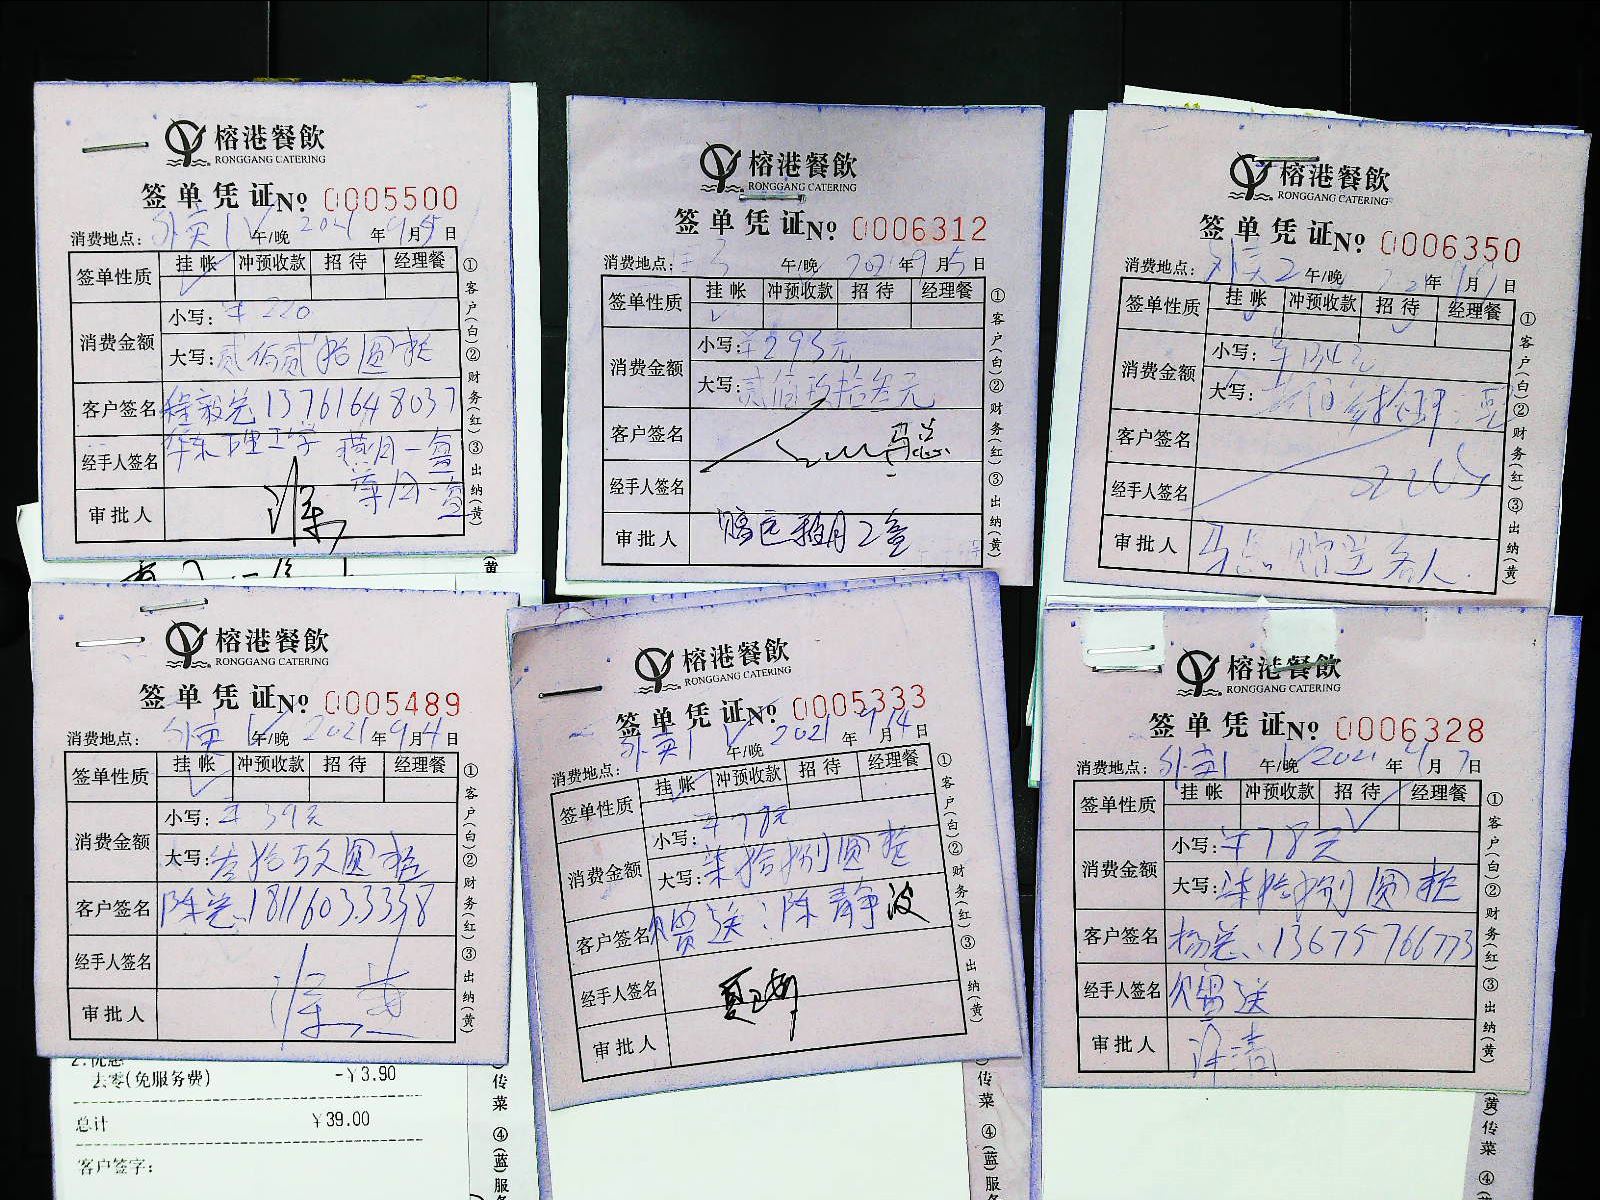 榕港餐飲
RONGGANG CATERING
签单凭证 No 0005500
消费地点: 外卖1 午/晚 2021年9月5日
签单性质 挂帐 冲预收款 招待 经理餐
消费金额 小写: ¥220
大写: 贰佰贰拾圆整
客户签名 程毅总 13761648037
经手人签名 华东理工学
审批人
①客户(白)②财务(红)③出纳(黄)
榕港餐飲
RONGGANG CATERING
签单凭证 No 0006312
消费地点: 午/晚 2021年9月5日
签单性质 挂帐 冲预收款 招待 经理餐
消费金额 小写: ¥293元
大写: 贰佰玖拾叁元
客户签名 马总
经手人签名
审批人 2盒
①客户(白)②财务(红)③出纳(黄)
榕港餐飲
RONGGANG CATERING
签单凭证 No 0006350
消费地点: 外卖2 午/晚 年9月 日
签单性质 挂帐 冲预收款 招待 经理餐
消费金额 小写:
大写:
客户签名
经手人签名
审批人 马总赠送客人
①客户(白)②财务(红)③出纳(黄)
榕港餐飲
RONGGANG CATERING
签单凭证 No 0005489
消费地点: 外卖1 午/晚 2021年9月4日
签单性质 挂帐 冲预收款 招待 经理餐
消费金额 小写: ¥39元
大写: 叁拾玖圆整
客户签名 陈总、18116033338
经手人签名
审批人
①客户(白)②财务(红)③出纳(黄)
去零(免服务费) -¥3.90
总计 ¥39.00
客户签字:
榕港餐飲
RONGGANG CATERING
签单凭证 No 0005333
消费地点: 外卖1 午/晚 2021年9月14日
签单性质 挂帐 冲预收款 招待 经理餐
消费金额 小写: ¥78元
大写: 柒拾捌圆整
客户签名 赠送:陈静波
经手人签名
审批人
①客户(白)②财务(红)③出纳(黄)
榕港餐飲
RONGGANG CATERING
签单凭证 No 0006328
消费地点: 外卖1 午/晚 2021年9月7日
签单性质 挂帐 冲预收款 招待 经理餐
消费金额 小写: ¥78元
大写: 柒拾捌圆整
客户签名 杨总、13675766773
经手人签名 赠送
审批人
①客户(白)②财务(红)③出纳(黄)
传菜 ④(蓝)服
传菜 ④(蓝)服
(黄)传菜 ④